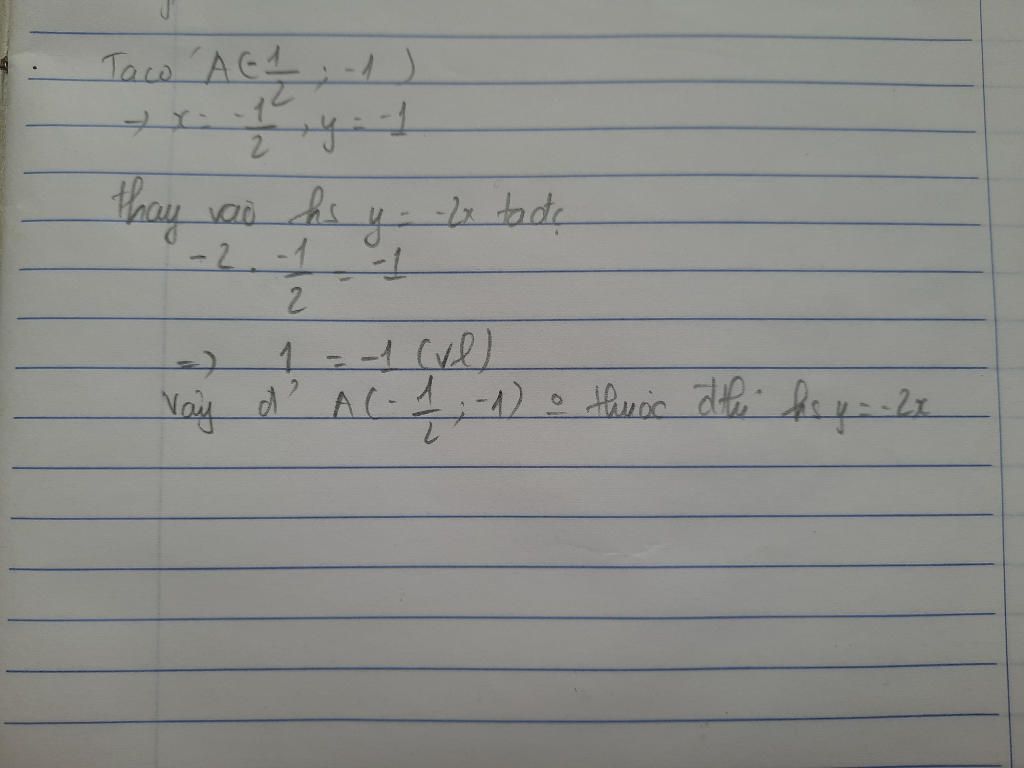 Ta có A(-1/2; -1)
→ x = -1/2, y = -1
thay vào hs y = -2x ta đc
-2 . -1/2 = -1
=> 1 = -1 (vl)
Vậy đ' A(-1/2; -1) o thuộc đthị hs y = -2x